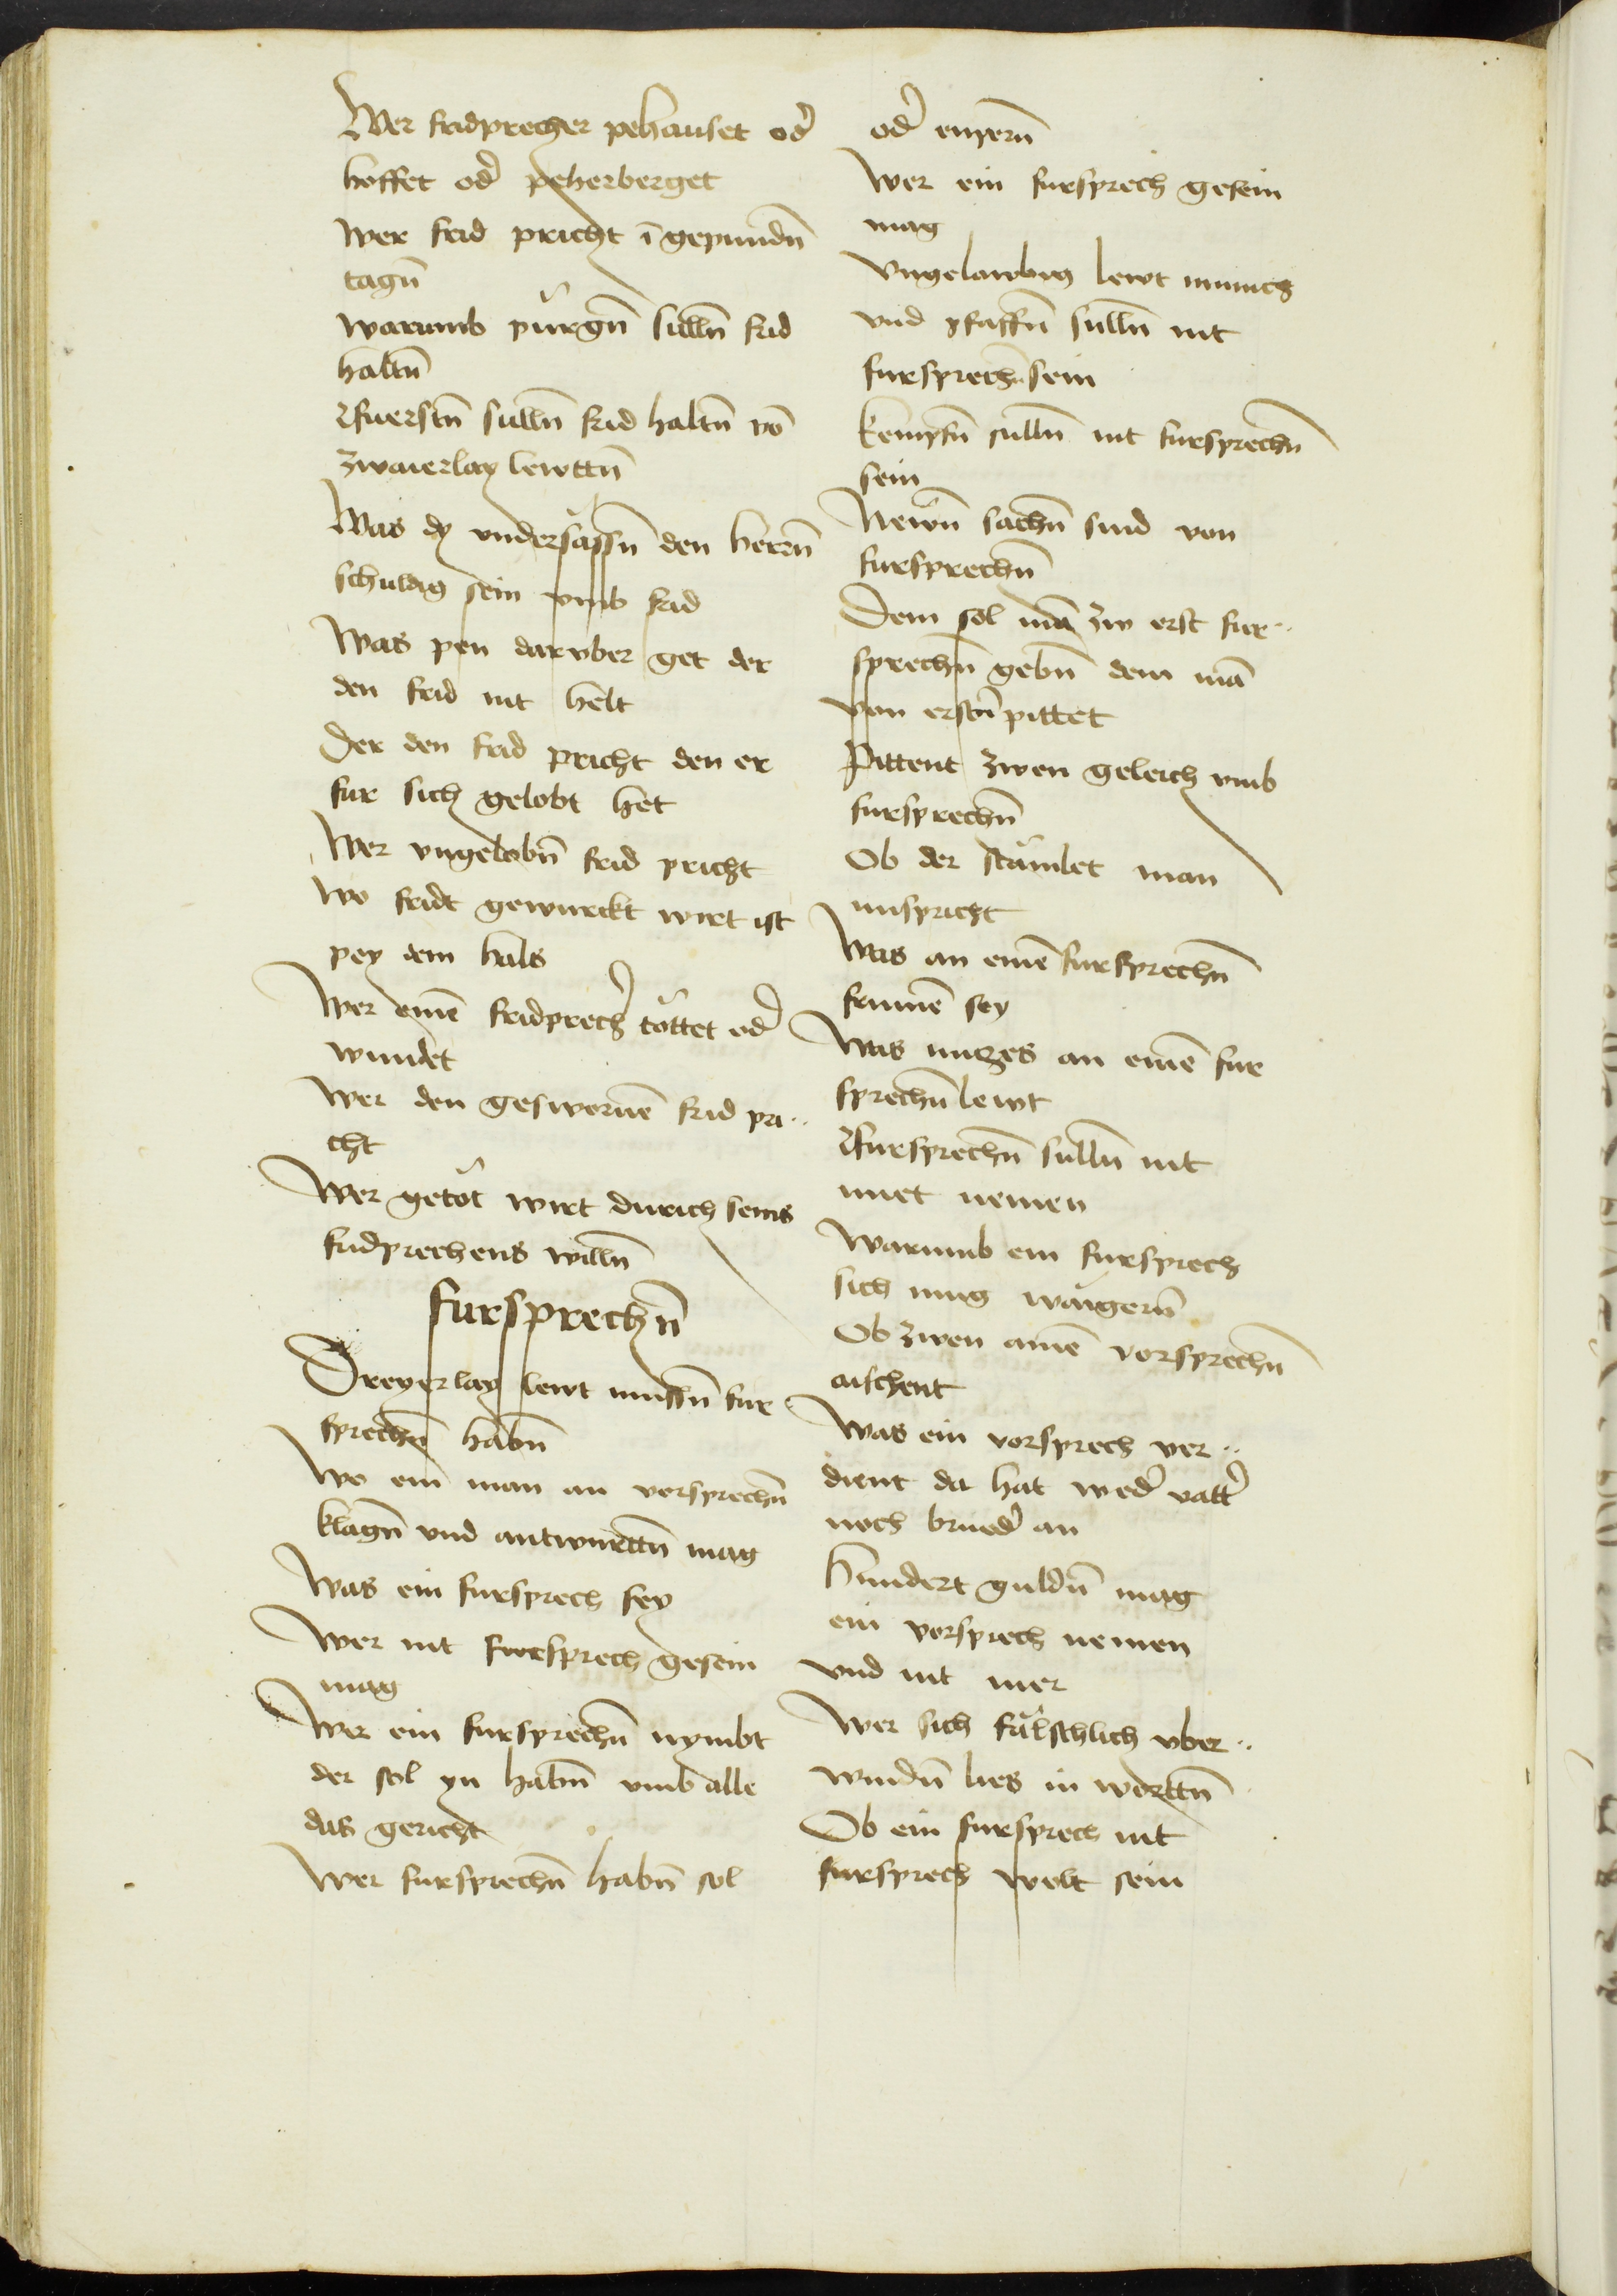 Wer fridprecher pehauset od̄
hoffet od̄ peherberget
Wer frid pricht ī gepundn̄
tagn̄
Warumb pürgn̄ sulln̄ frid
haltn̄
Fuerstn̄ sulln̄ frid haltn̄ vō
zwaierlay lewttn̄
Was dy vndersässn̄ den herrn̄
schuldig sein vmb frid
Was pen darvber get der
den frid nit helt
Der den frid pricht den er
fur sich gelobt het
Wer vngelobn̄ frid pricht
Wo fridt gewurckt wirt ist
pey dem hals
Wer einē fridprech̄ töttet od̄
wundet
Wer den geswornē frid pri¨
cht
Wer getöt wirt durich seins
fridprechens willn̄
fursprechn̄
Dreyerlay lewt mussn̄ fur
sprechn̄ habn̄
Wo ein man an vorsprechn̄
klagn̄ vnd antwurttn̄ mag
Was ein fursprech sey
Wer nit fursprech gesein
mag
Wer ein fursprechn̄ nymbt
der sol yn habn̄ vmb alle
das gericht
Wer fursprechn̄ habn̄ sol
od̄ enpern̄
Wer ein fursprech gesein
mag
Vngelawbig lewt munich
vnd pfaffn̄ sulln̄ nit
fursprechn̄ sein
Kempfn̄ sulln̄ nit fursprechn̄
sein
Newn̄ sachn̄ sind von
fursprechn̄
Dem sol mā zw erst fur¨
sprechn̄ gebn̄ dem mā
von erstn̄ pittet
Pittent zwen geleich vmb
fursprechn̄
Ob der stämlet man
misspricht
Was an einē fursprechn̄
frumē sey
Was nutzes an einē fur
sprechn̄ lewt
Fursprechn̄ sulln̄ nit
miet nemen
Warumb ein fursprech
sich mug wäigern̄
Ob zwen ainē vorsprechn̄
aischent
Was ein vorsprech ver¨
dient da hat wed̄ vatt̄
noch brued̄ an
Hundert guldn̄ mag
ein vorsprech nemen
vnd nit mer
Wer sich fälschlich vber¨
windn̄ lies in worttn̄
Ob ein fursprech nit
fursprech wolt sein